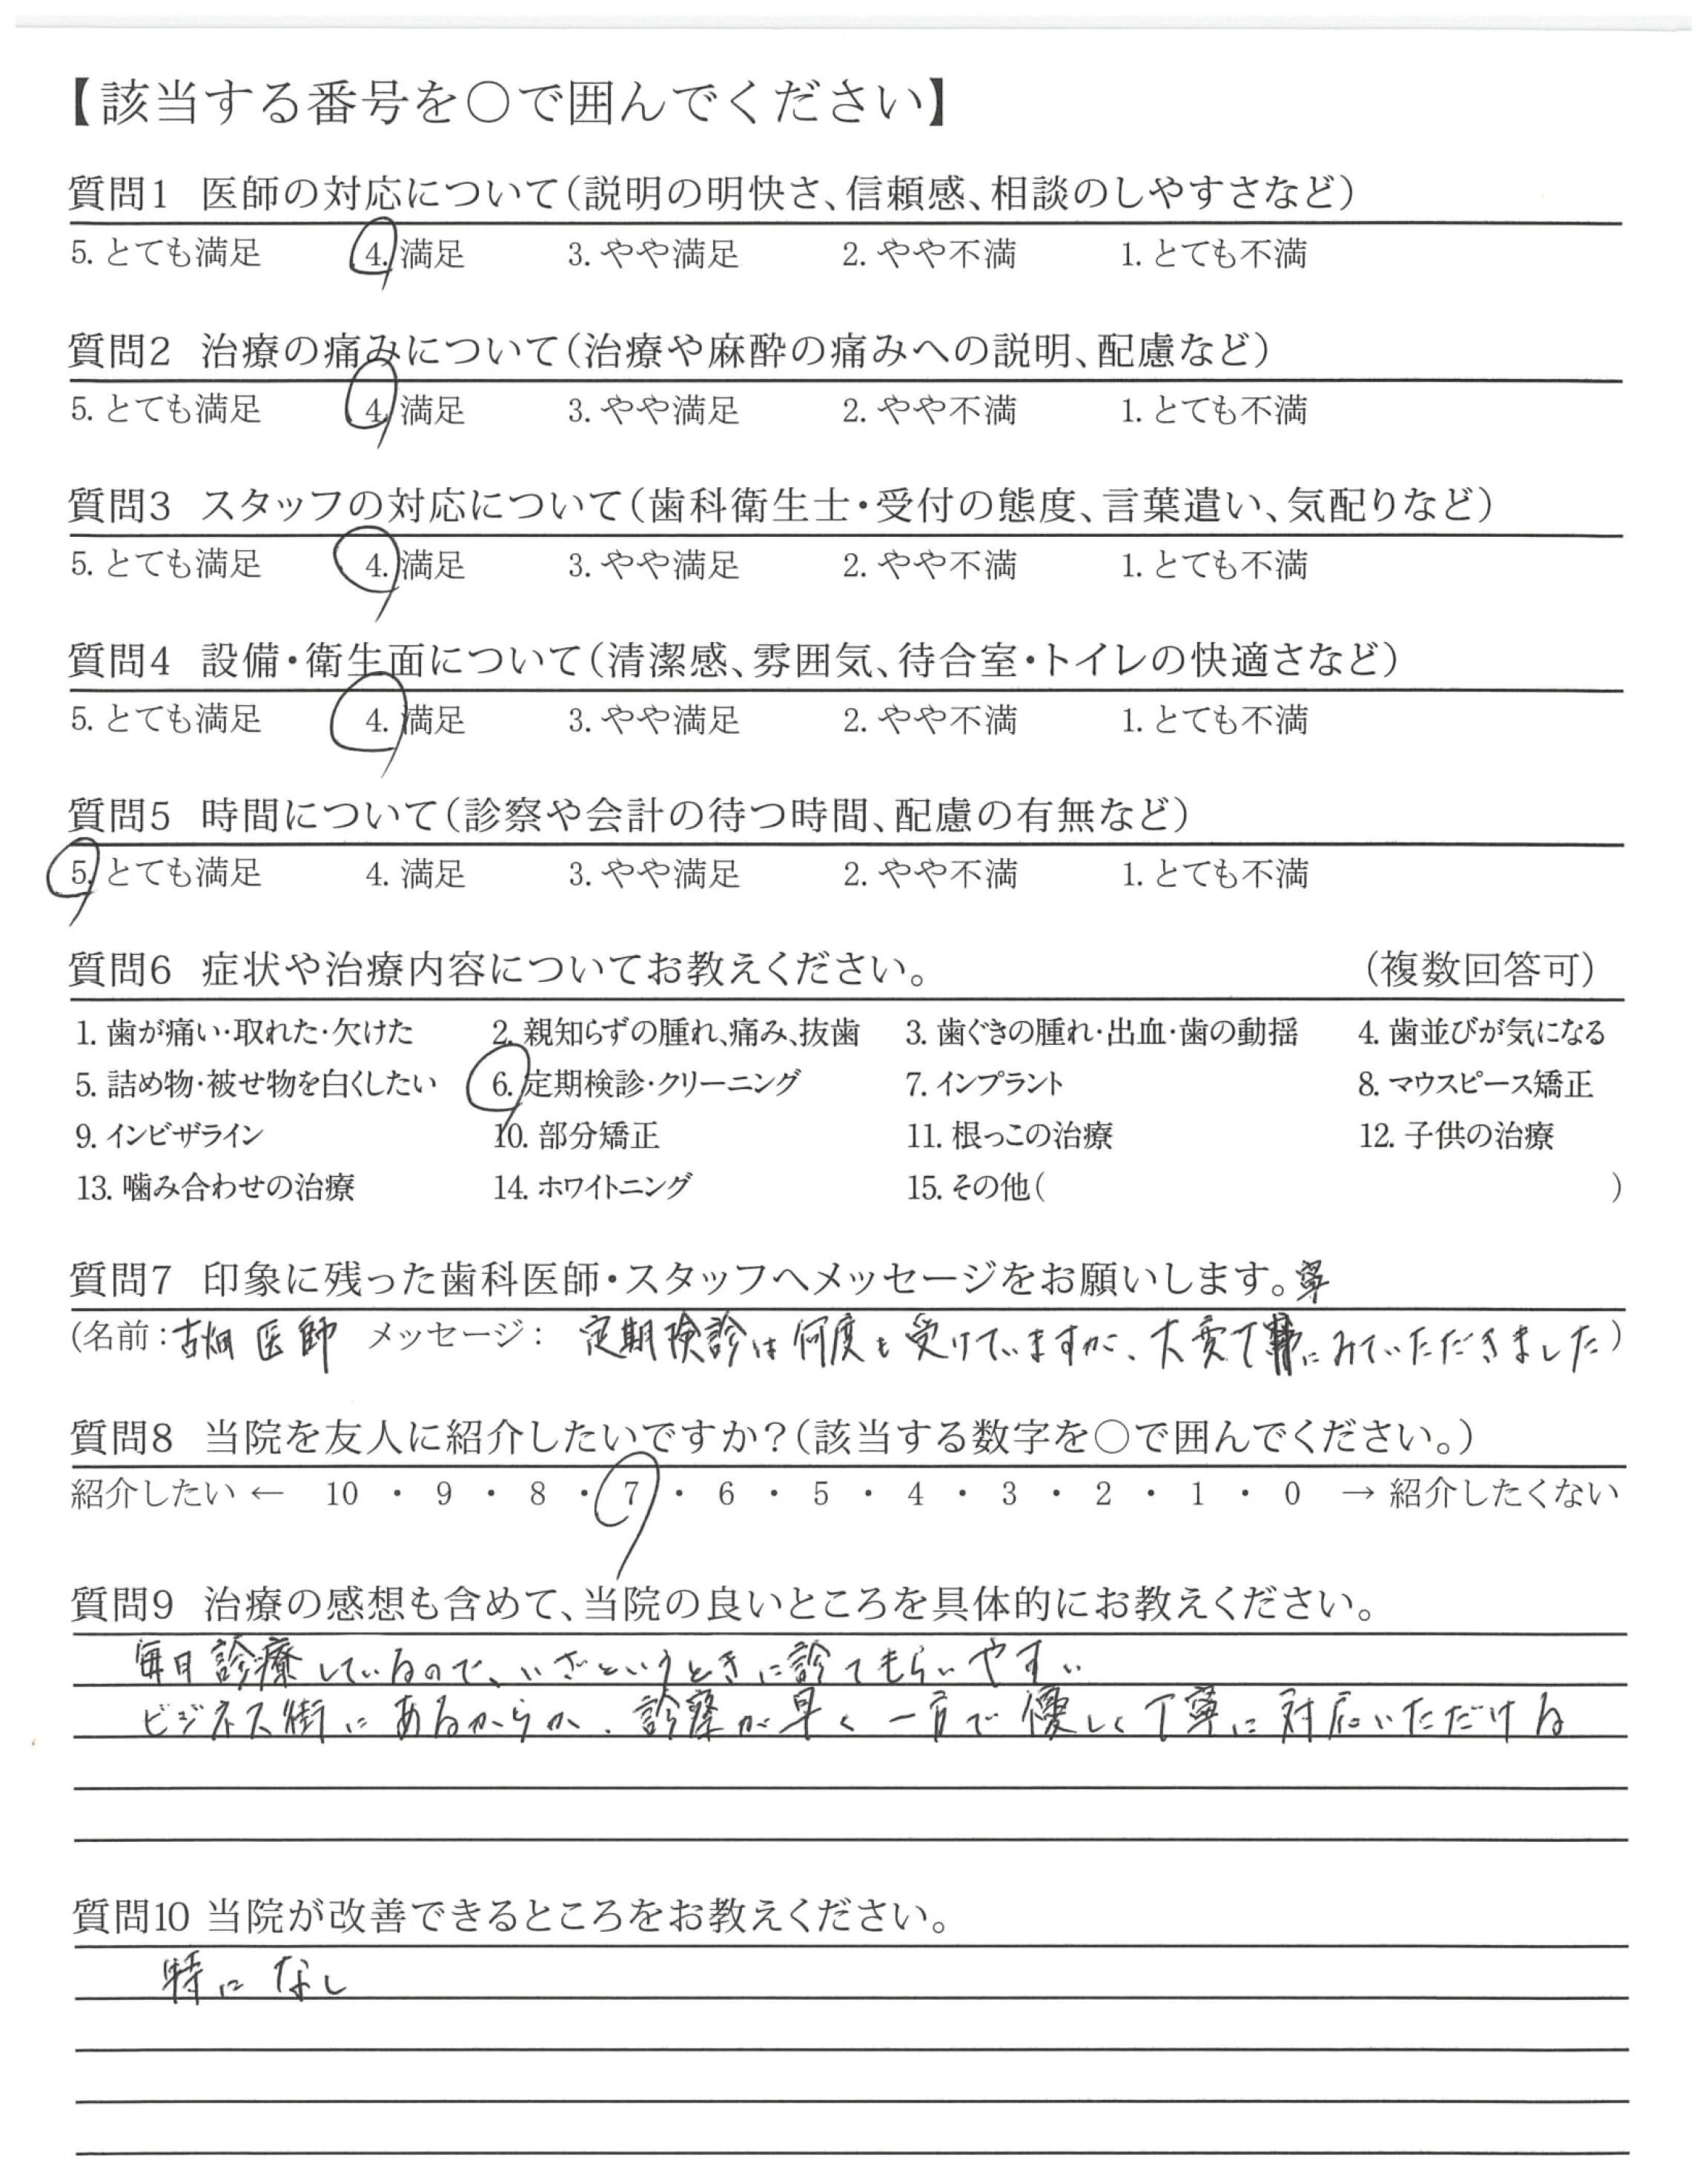 【該当する番号を○で囲んでください】
質問1 医師の対応について(説明の明快さ、信頼感、相談のしやすさなど)
5. とても満足 4. 満足 3. やや満足 2. やや不満 1. とても不満
質問2 治療の痛みについて(治療や麻酔の痛みへの説明、配慮など)
5. とても満足 4. 満足 3. やや満足 2. やや不満 1. とても不満
質問3 スタッフの対応について(歯科衛生士・受付の態度、言葉遣い、気配りなど)
5. とても満足 4. 満足 3. やや満足 2. やや不満 1. とても不満
質問4 設備・衛生面について(清潔感、雰囲気、待合室・トイレの快適さなど)
5. とても満足 4. 満足 3. やや満足 2. やや不満 1. とても不満
質問5 時間について(診察や会計の待つ時間、配慮の有無など)
5. とても満足 4. 満足 3. やや満足 2. やや不満 1. とても不満
質問6 症状や治療内容についてお教えください。 (複数回答可)
1. 歯が痛い・取れた・欠けた 2. 親知らずの腫れ、痛み、抜歯 3. 歯ぐきの腫れ・出血・歯の動揺 4. 歯並びが気になる
5. 詰め物・被せ物を白くしたい 6. 定期検診・クリーニング 7. インプラント 8. マウスピース矯正
9. インビザライン 10. 部分矯正 11. 根っこの治療 12. 子供の治療
13. 噛み合わせの治療 14. ホワイトニング 15. その他( )
質問7 印象に残った歯科医師・スタッフへメッセージをお願いします。
(名前:古畑 医師 メッセージ: 定期検診は何度も受けていますが、大変丁寧にみていただきました)
質問8 当院を友人に紹介したいですか?(該当する数字を○で囲んでください。)
紹介したい ← 10 ・ 9 ・ 8 ・ 7 ・ 6 ・ 5 ・ 4 ・ 3 ・ 2 ・ 1 ・ 0 → 紹介したくない
質問9 治療の感想も含めて、当院の良いところを具体的にお教えください。
毎日診療しているので、いざというときに診てもらいやすい
ビジネス街にあるからか、診察が早く一方で優しく丁寧に対応いただける
質問10 当院が改善できるところをお教えください。
特になし